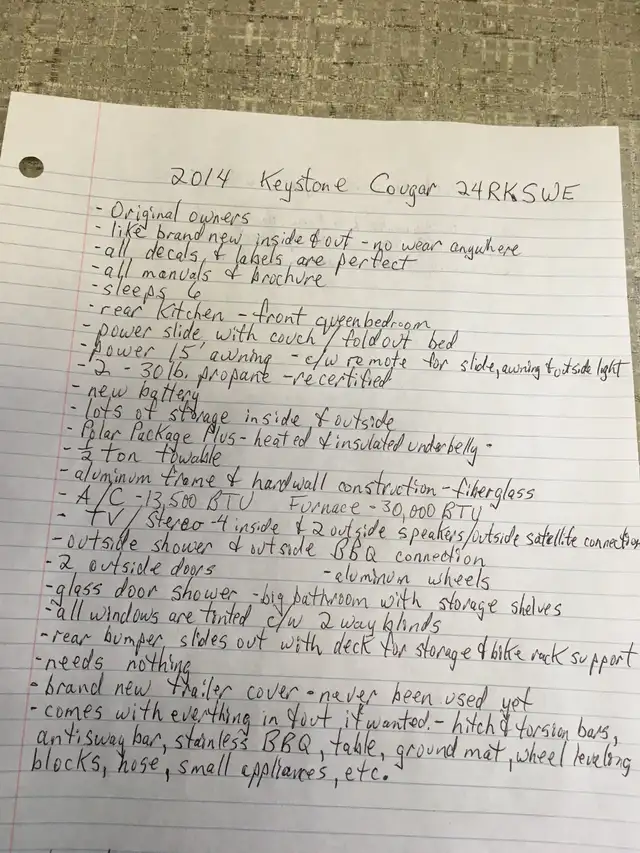 2014 Keystone Cougar 24RKSWE
- Original owners
- like brand new inside & out - no wear anywhere
- all decals & labels are perfect
- all manuals & brochure
- sleeps 6
- rear Kitchen - front queen bedroom
- power slide with couch / foldout bed
- power 15' awning - c/w remote for slide, awning & outside light
- 2 - 30 lb. propane - recertified
- new battery
- lots of storage inside & outside
- Polar Package Plus - heated & insulated underbelly -
- 1/2 ton towable
- aluminum frame & hardwall construction - fiberglass
- A/C - 13,500 BTU Furnace - 30,000 BTU
- TV / Stereo - 4 inside & 2 outside speakers/outside satellite connection
- outside shower & outside BBQ connection
- 2 outside doors - aluminum wheels
- glass door shower - big bathroom with storage shelves
- all windows are tinted c/w 2 way blinds
- rear bumper slides out with deck for storage & bike rack support
- needs nothing
- brand new trailer cover - never been used yet
- comes with everything in & out if wanted - hitch & torsion bars,
antisway bar, stainless BBQ, table, ground mat, wheel leveling
blocks, hose, small appliances, etc.